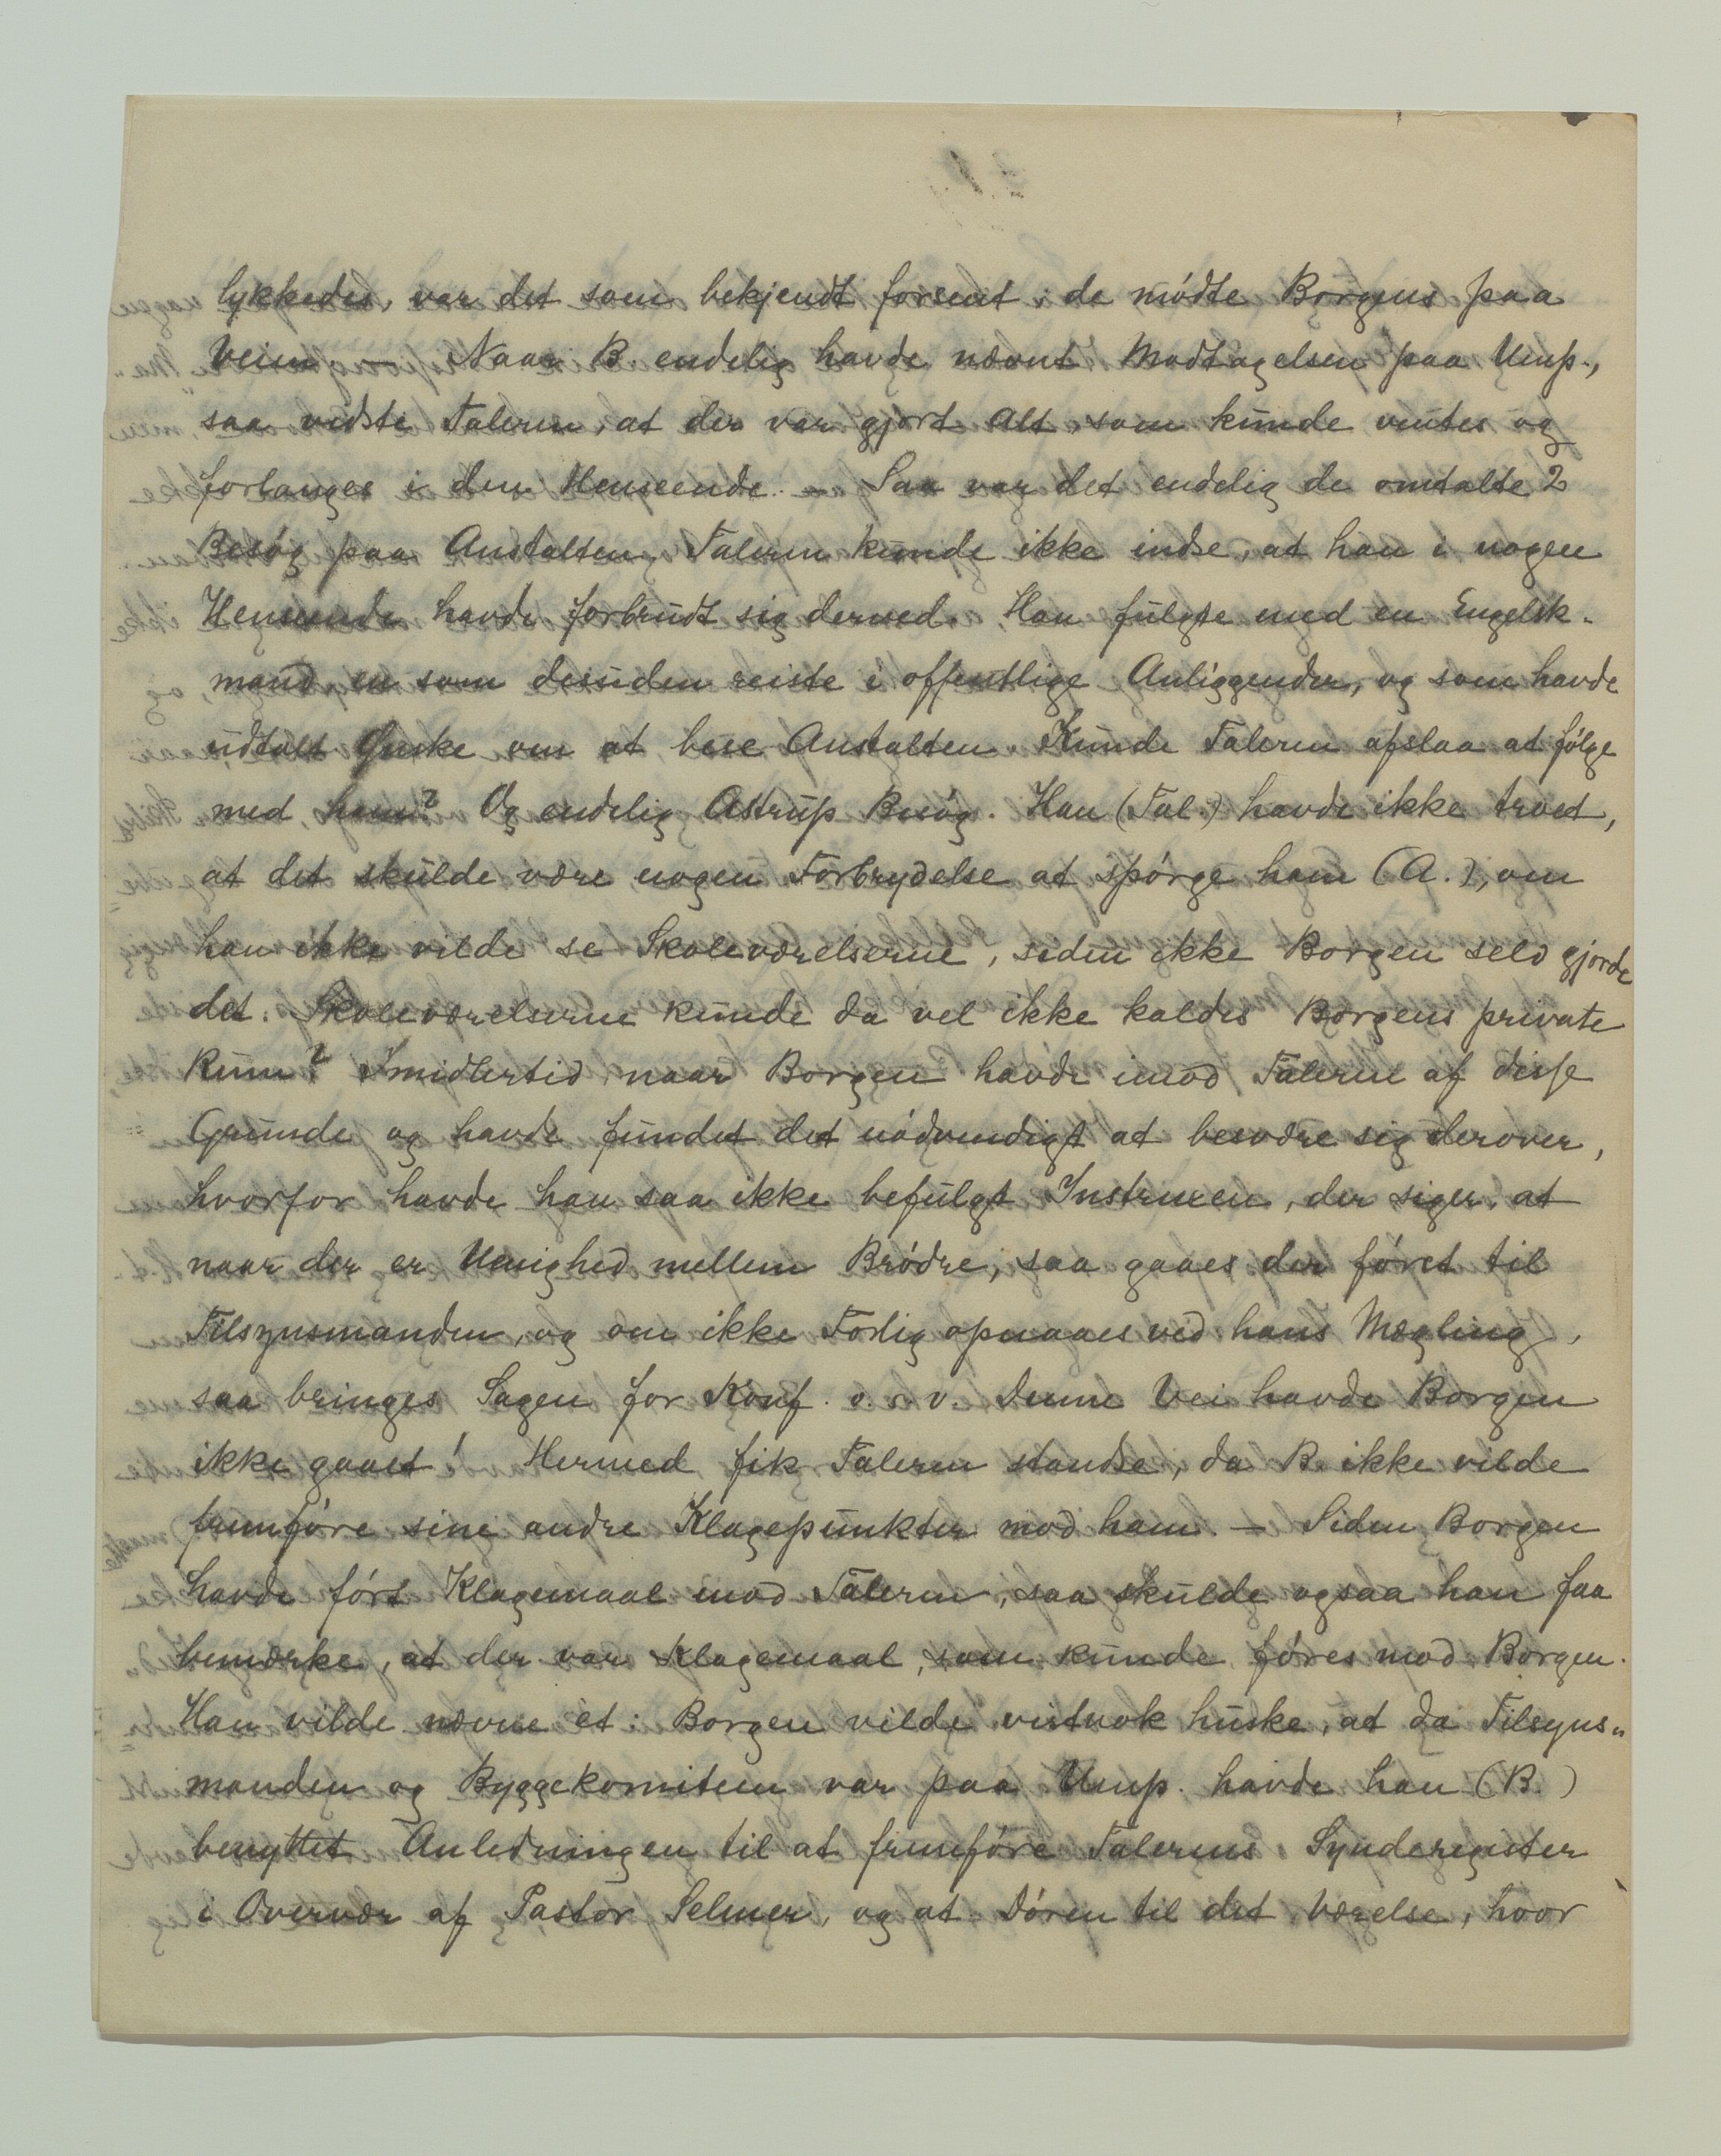 lykkedes, var det som bekjendt forsent: de mödte Borgens paa
Veien. — Naar B. endelig havde nævnt Modtagelsen paa Ump.,
saa vidste Taleren, at der var gjort alt, som kunde ventes og
forlanges i den Henseende. — Saa var det endelig de omtalte 2
Besög paa Anstalten. Taleren kunde ikke indse, at han i nogen
Henseende havde forbrudt sig derved. Han fulgte med en Engelsk-
mand en som desuden reiste i offentlige Anliggender, og som havde
udtalt Önske om at bese Anstalten. Kunde Taleren afslaa at fölge
med ham? Og endelig Astrup Besög. Han (Tal.) havde ikke troet,
at det skulde være nogen Forbrydelse at spörge ham (A.), om
han ikke vilde se Skoleværelserne, siden ikke Borgen selv gjorde
det. Skoleværelserne kunde da vel ikke kaldes Borgens private
Rum? Imidlertid, naar Borgen havde imod Taleren af disse
Grunde og havde fundet det nödvendigt at besvære sig derover,
hvorfor havde han saa ikke befulgt Instruxen, der siger, at
naar der er Uenighed mellem Brödre, saa gaaes der först til
Tilsynsmanden, og om ikke Forlig opnaaes ved hans Mægling,
saa bringes Sagen for Konf. o. s. v. Denne Vei havde Borgen
ikke gaaet! Hermed fik Taleren standse, da B. ikke vilde
fremföre sine andre Klagepunkter mod ham. — Siden Borgen
havde fört Klagemaal imod Taleren, saa skulde ogsaa han faa
bemærke, at der var Klagemaal, som kunde föres mod Borgen.
Han vilde nævne ét: Borgen vilde vistnok huske, at da Tilsyns-
manden og Byggekomiteen var paa Ump. havde han (B.)
benyttet Anledningen til at fremföre Talerens Synderegister
i Overvær af Pastor Selmer, og at Dören til det Værelse, hvor